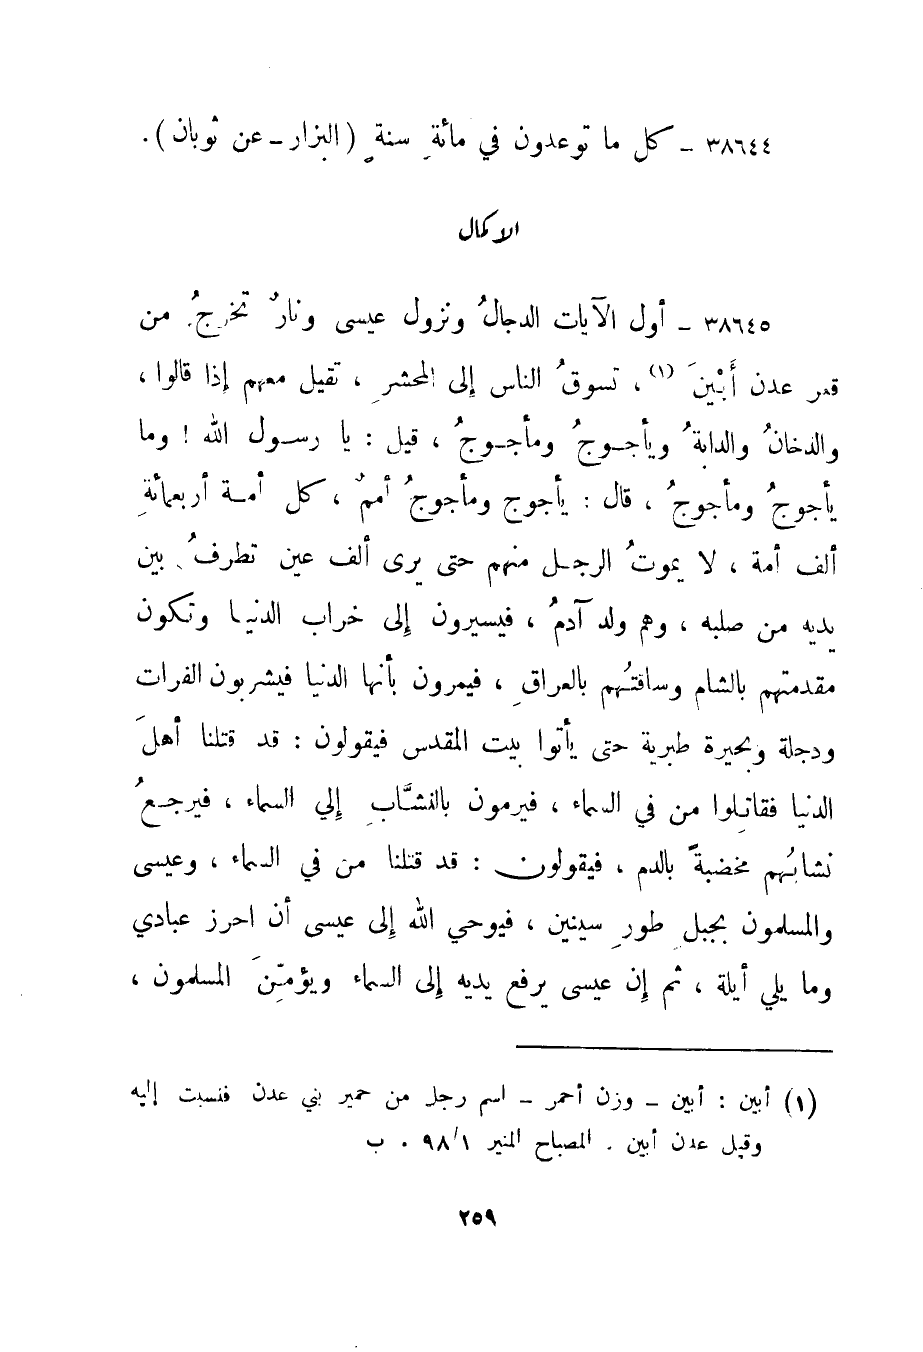 ٣٨٦٤٤ ـ كل ما توعدون في مائةِ سنةٍ (البزار ـ عن ثوبان).
الاكمال
٣٨٦٤٥ ـ أول الآيات الدجالُ ونزول عيسى ونارٌ تخرجُ من
قعر عدن أَبْينَ (١)، تسوقُ الناس إلى المحشرِ ، تقيل معهم إذا قالوا ،
والدخانُ والدابةُ ويأجـوجُ ومأجـوجُ ، قيل : يا رسـول الله ! وما
يأجوجُ ومأجوجُ ، قال : يأجوج ومأجوجُ أممٌ ، كل أمـة أربعمائةِ
ألف أمة ، لا يموتُ الرجـل منهم حتى يرى ألف عين تطرفُ بين
يديه من صلبه ، وهم ولد آدمُ ، فيسيرون إلى خراب الدنيا وتكون
مقدمتهم بالشام وساقتُهم بالعراقِ ، فيمرون بأنها الدنيا فيشربون الفرات
ودجلة وبحيرة طبرية حتى يأتوا بيت المقدس فيقولون : قد قتلنا أهلَ
الدنيا فقاتلوا من في السماء ، فيرمون بالنشَّابِ إلي السماء ، فيرجـعُ
نشابُهم مخضبةً بالدم ، فيقولون : قد قتلنا من في السماء ، وعيسى
والمسلمون بجبلِ طورِ سينين ، فيوحي الله إلى عيسى أن احرز عبادي
وما يلي أيلة ، ثم إن عيسى يرفع يديه إلى السماء ويؤمِّنَ المسلمون ،
(١) أبين : أبين ـ وزن أحمر ـ اسم رجل من حمير بني عدن فنسبت إليه
وقيل عدن أبين . المصباح المنير ٩٨/١ . ب
٢٥٩